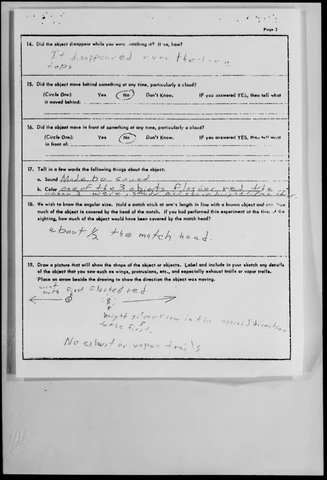 Page 3
14. Did the object disappear while you were watching it? If so, how?
It disappeared over the tree
tops
15. Did the object move behind something at any time, particularly a cloud?
(Circle One): Yes No Don't Know. IF you answered YES, then tell what
it moved behind:
16. Did the object move in front of something at any time, particularly a cloud?
(Circle One): Yes No Don't Know. IF you answered YES, then tell what
in front of:
17. Tell in a few words the following things about the object:
a. Sound Made no sound
b. Color one of the 3 objects flashed red the
18. We wish to know the angular size. Hold a match stick at arm's length in line with a known object and note how
much of the object is covered by the head of the match. If you had performed this experiment at the time of the
sighting, how much of the object would have been covered by the match head?
about 1/2 the match head.
19. Draw a picture that will show the shape of the object or objects. Label and include in your sketch any details
of the object that you saw such as wings, protrusions, etc., and especially exhaust trails or vapor trails.
Place an arrow beside the drawing to show the direction the object was moving.
first flashed red
bright silver in the direction
to the first.
No exhaust or vapor trails